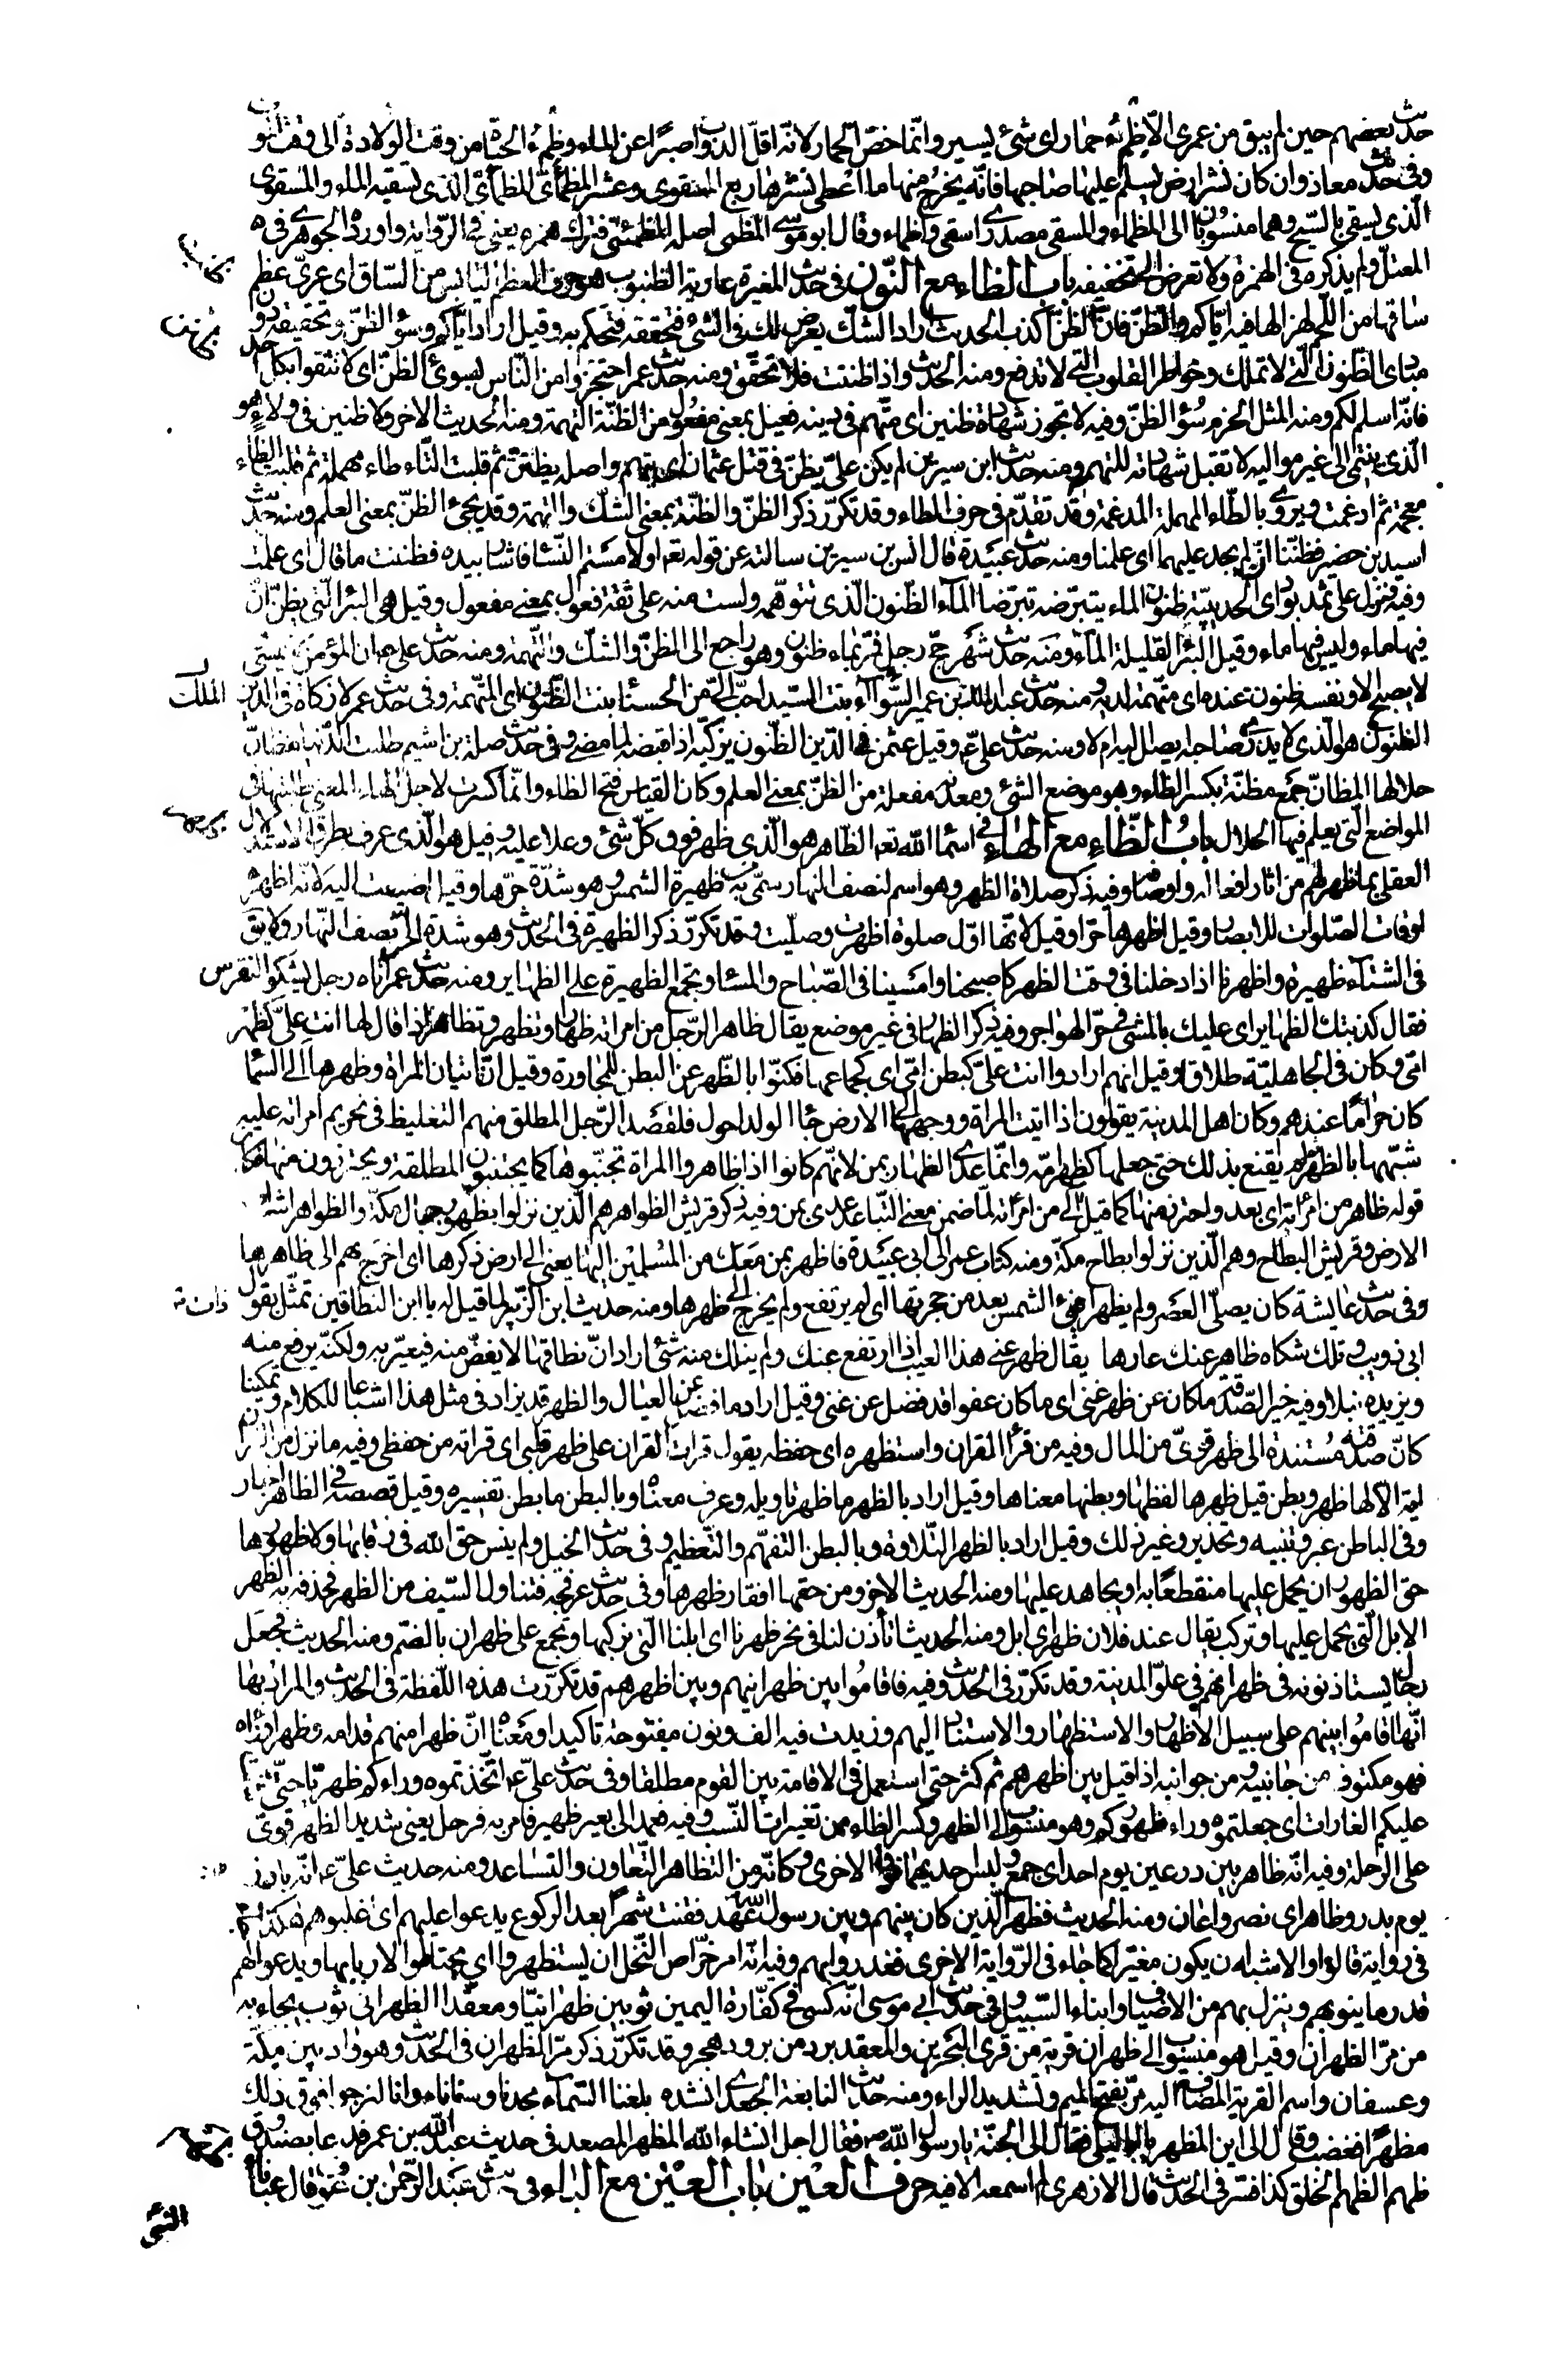 حديث بعضهم حين لم يبق من عمرى الّا ظمئ حمار اى شئ يسير وانّما خصّ الحمار لانّه اقلّ الدواب صبرًا عن الماء وظمءُ الحيٰاة من وقت الولادة الى وقت الموت
وفى حديث معاذ وان كان نشر ارض يسلم عليها صاحبها فانّه يخرج منها ما اعطى نشرها ربع المسقوى وعشر المظمأئ المظمأئ الذى تسقيه السماء والمسقوى
الّذى يسقى بالسّيح وهما منسوبان الى المظمأ والمسقى مصدرى اسقى واظماء وقال ابو موسى المظمى اصله المظمئىّ فترك همزه يعنى فى الرّواية واورده الجوهرى فى
المعتلّ ولم يذكره فى الهمزة ولا تعرض الى تخفيفه باب الظاء مع النّون فى حديث المغيرة عارية الظنبوب هو حرف العظم اليابس من السّاق اى عرى عظم
ساقها من اللحم لهزالها فيه ايّاكم والظنّ فانّ الظنّ اكذب الحديث اراد الشكّ يعرض لك فى الشئ فتحققه فتحكم به وقيل اراد ايّاكم وسوٴ الظنّ وتحقيقه دون
مبادى الظنون الّتى لا تملك وخواطر القلوب الّتى لا تدفع ومنه الحديث واذا ظننت فلا تحقّق ومنه حديث عمر احتجزوا من النّاس بسوئ الظنّ اى لا تثقوا بكل احد
فانّه اسلم لكم ومنه المثل الحزم سُوٴ الظنّ وفيه لا تجوز شهادة ظنين اى متّهم فى دينه فعيل بمعنى مفعول من الظنّة التهمة ومنه الحديث الاخر ولا ظنين فى ولاء هو
الّذى ينتمى الى غير مواليه لا تقبل شهادته للتهم ومنه حديث ابن سيرين لم يكن علىّ يظنّ فى قتل عثمان اى يتهم واصله يظتنّ ثم قلبت التّاء طاء مهملة ثم قلبت الظاء
معجمة ثم ادغمت ويروى بالطّاء المهملة المدغمة وقد تقدّم فى حرف الطاء وقد تكرّر ذكر الظنّ والظنّة بمعنى الشكّ والتهمة وقد يجئ الظنّ بمعنى العلم ومنه حديث
اسيد بن حضير فظنّنا ان لم يجد عليهما اى علمنا ومنه حديث عبيدة قال انس بن سيرين سالته عن قوله تعه اولامستم النّسٰا فاشار بيده فظننت ما قال اى علمت
وفيه فنزل على ثمد بوادى الحديبيّة ظنون الماء يتبرّضه تبرّضا المآء الظنون الّذى تتوهّمه ولست منه على ثقة فعول بمعنى مفعول وقيل هى البئر الّتى يظنّ انّ
فيها ماء وليس فيها ماء وقيل البئر القليلة المآء ومنه حديث شهر حجّ رجل فمرّ بماء ظنون وهو راجع الى الظنّ والشكّ والتهمة ومنه حديث علىّ ع ان المؤمن لا يمسى
لا يصبح الا ونفسه ظنون عنده اى متّهمة لديه ومنه حديث عبد الملك بن عمير السّوٴآء بنت السّيد احبّ الىّ من الحسنٰا بنت الظّنون اى المتّهمة وفى حديث عمر لا زكاة فى الدين
الملك
الظنون هو الّذى لا يدرى صاحبه يصل اليه ام لا ومنه حديث علىّ ع وقيل عثمن فى الدّين الظنون يزكّيه اذا قبضه لما مضى وفى حديث صلة بن اشيم طلبت الدّنيا مظانّ
حلالها المظانّ جمع مظنّة بكسر الظاء وهو موضع الشئ ومعدنه مفعلة من الظنّ بمعنى العلم وكان القياس فتح الظاء وانّما كسرت لاجل الهاء المعنى طلبتها فى
المواضع الّتى يعلم فيها الحلال باب الظّاء مع الهٰاء فى اسمٰا اللّه تعه الظّاهر هو الّذى ظهر فوق كلّ شئ وعلا عليه وقيل هو الّذى عرف بطرق الاستدلال
العقلى بما ظهر لهم من آثار افعاله واوصافه وفيه ذكر صلاة الظهر وهو اسم لنصف النهار سمّى به من ظهيرة الشمس وهو شدّة حرّها وقيل اضيفت اليه لانّه اظهر
اوقات الصّلوات للابصار وقيل اظهرها حرّا وقيل لانّها اوّل صلوة اظهرت وصلّيت وقد تكرّر ذكر الظهيرة فى الحديث وهو شدة الحرّ نصف النّهار ولا يق
فى الشتآء ظهيرة واظهرنا اذا دخلنا فى وقت الظهر كاصبحنا وامسينا فى الصّباح والمسٰا وتجمع الظهيرة على الظهاير ومنه حديث عمر اتاه رجل يشكو النقرس
فقال كذبتك الظهاير اى عليك بالمشى فى حرّ الهواجر وفيه ذكر الظهار فى غير موضع يقال ظاهر الرّجل من امراته ظهارا وتظهر وتظاهر اذا قال لها انت علىّ كظهر
امّى وكان فى الجاهليّة طلاقا وقيل انهم ارادوا انت علىّ كبطن امّى اى كجماعها فكنّوا بالظهر عن البطن للمجاورة وقيل انّ اتيان المراة وظهرها الى السّمٰا
كان حرامًا عندهم وكان اهل المدينة يقولون اذا اتيت المراة ووجهها الى الارض جٰا الولد احول فلقصد الرّجل المطلق منهم التغليظ فى تحريم امراته عليه
شبّهها بالظهر ثم لم يقنع بذلك حتى جعلها كظهر امّه وانّما عدى الظهار بمن لانّهم كانوا اذا ظاهروا المراة تجنّبوها كما يجتنبون المطلقة ويحترزون منها فكان
قوله ظاهر من امراته اى بعد واحترز منها كما قيل آلى من امراته لمّا ضمن معنى التّباعد عدى بمن وفيه ذكر قريش الظواهر هم الّذين نزلوا بظهور جبال مكّة والظواهر اشراف
الارض وقريش البطاح وهم الّذين نزلوا بطاح مكّة ومنه كتاب عمر الى ابى عبيدة فاظهر بمن معك من المسلمين اليها يعنى الى ارض ذكرها اى اخرج بهم الى ظاهرها
وفى حديث عايشة كان يصلّى العصر ولم يظهر فئ الشمس بعد من حجرتها اى لم يرتفع ولم يخرج الى ظهرها ومنه حديث ابن الزبير لما قيل له يا ابن النطاقين تمثّل بقول
ذات
ابى ذويب وتلك شكاة ظاهر عنك عارها يقال ظهر عنى هذا العيب اذا ارتفع عنك ولم ينلك منه شئ اراد انّ نطاقها لا يغضّ منه فيعيّر به ولكنّه يرفع منه
ويزيده نبلا وفيه خير الصّدقة ما كان عن ظهر غنى اى ما كان عفوا قد فضل عن غنى وقيل اراد ما فضل عن العيال والظهر قد يزاد فى مثل هذا اشباعا للكلام وتمكينا
كانّ صدقته مُستندة الى ظهر قوىّ من المال وفيه من قرأ القرن واستظهره اى حفظه يقول قرات القران على ظهر قلبى اى قراته من حفظى وفيه ما نزل من القرن
اية الا لها ظهر وبطن قيل ظهرها لفظها وبطنها معناها وقيل اراد بالظهر ما ظهر تاويله وعرف معنٰاه وبالبطن ما بطن تفسيره وقيل قصصه فى الظاهر اخبار
وفى الباطن عبر وتنبيه وتحذير وغير ذلك وقيل اراد بالظهر التّلاوة وبالبطن التفهّم والتّعظيم وفى حديث الخيل ولم ينس حق اللّه فى رقابها ولا ظهورها
حق الظهور ان يحمل عليها منقطعًا به او يجاهد عليها ومنه الحديث الاخر ومن حقها افقار ظهرها وفى حديث عرفجه فتناول السّيف من الظهر فحذفه به الظهر
الابل الّتى يحمل عليها وتركب يقال عند فلان ظهر اى ابل ومنه الحديث اتأذن لنا فى نحر ظهرنا اى ابلنا الّتى نركبها وتجمع على ظهران بالضّم ومنه الحديث فجعل
رجال يستاذنونه فى ظهرانهم فى علوّ المدينة وقد تكرّر فى الحديث وفيه فاقامُوا بين ظهرانيهم وبين اظهرهم قد تكرّرت هذه اللّفظة فى الحديث والمراد بها
انّها اقامُوا بينهم على سبيل الاظهار والاستظهار والاستناد اليهم وزيدت فيه الف ونون مفتوحة تاكيدا ومعنٰاه انّ ظهرا منهم قدامه وظهرا ورٰاه
فهو مكنوف من جانبيه ومن جوانبه اذا قيل بين اظهرهم ثم كثر حتى استعمل فى الاقامة بين القوم مطلقا وفى حديث علىّ ع اتّخذتموه وراءكم ظهريّا حتّى شنّت
عليكم الغارات اى جعلتموه وراء ظهوركم وهو منسوب الى الظهر وكسر الظاء من تغييرات النّسب وفيه فعمد الى بعير ظهير فامر به فرحل يعنى شديد الظهر قوىّ
على الرحلة وفيه انّه ظاهر بين درعين يوم احد اى جمع ولبس احديهما فوق الاخرى وكانّه من التظاهر التّعاون والتّساعد ومنه حديث علىّ ع انّه بارز
يوم بدر وظاهر اى نصر واعان ومنه الحديث فظهر الّذين كان بينهم وبين رسول اللّه عهد فقنت شهرًا بعد الركوع يدعوا عليهم اى غلبوهم هكذا
فى رواية قالوا والاشبه ان يكون مغيّرا كما جاء فى الرّواية الاخرى فغدروا بهم وفيه انّه امر خرّاص النّخل ان يستظهروا اى يحتاطوا لاربابها ويدعوا لهم
قدر ما ينوبهم وينزل بهم من الاضياف وابناء السّبيل وفى حديث ابى موسى انّه كسى فى كفّارة اليمين ثوبين ظهرانيّا ومعقّدا الظهرانى ثوب يجاء به
من مرّ الظهران وقيل هو منسوب الى ظهران قرية من قرى البحرين والمعقد برد من برود هجر وقد تكرّر ذكر مرّ الظهران فى الحديث وهو واد بين مكّة
وعسفان واسم القرية المضاف اليه مرّ بفتح الميم وتشديد الراء ومنه حديث النابغة الجعدى انشده بلغنا السّمآء مجدنا وسنٰاءنا وانا لنرجوا فوق ذلك
مظهرًا فغضب وقال الى اين المظهر يا ابا ليلى فقال الى الجنّة يا رسول اللّه فقال اجل انشاء اللّه المظهر المصعد فى حديث عبد اللّه بن عمر فدعا بصندوق
ظهم الظهم الخلق كذا فسّر فى الحديث قال الازهرى لم اسمعه الا فيه حرف العين باب العين مع الباء فى حديث عبد الرّحمٰن بن عوف قال عبأنا
النّبى